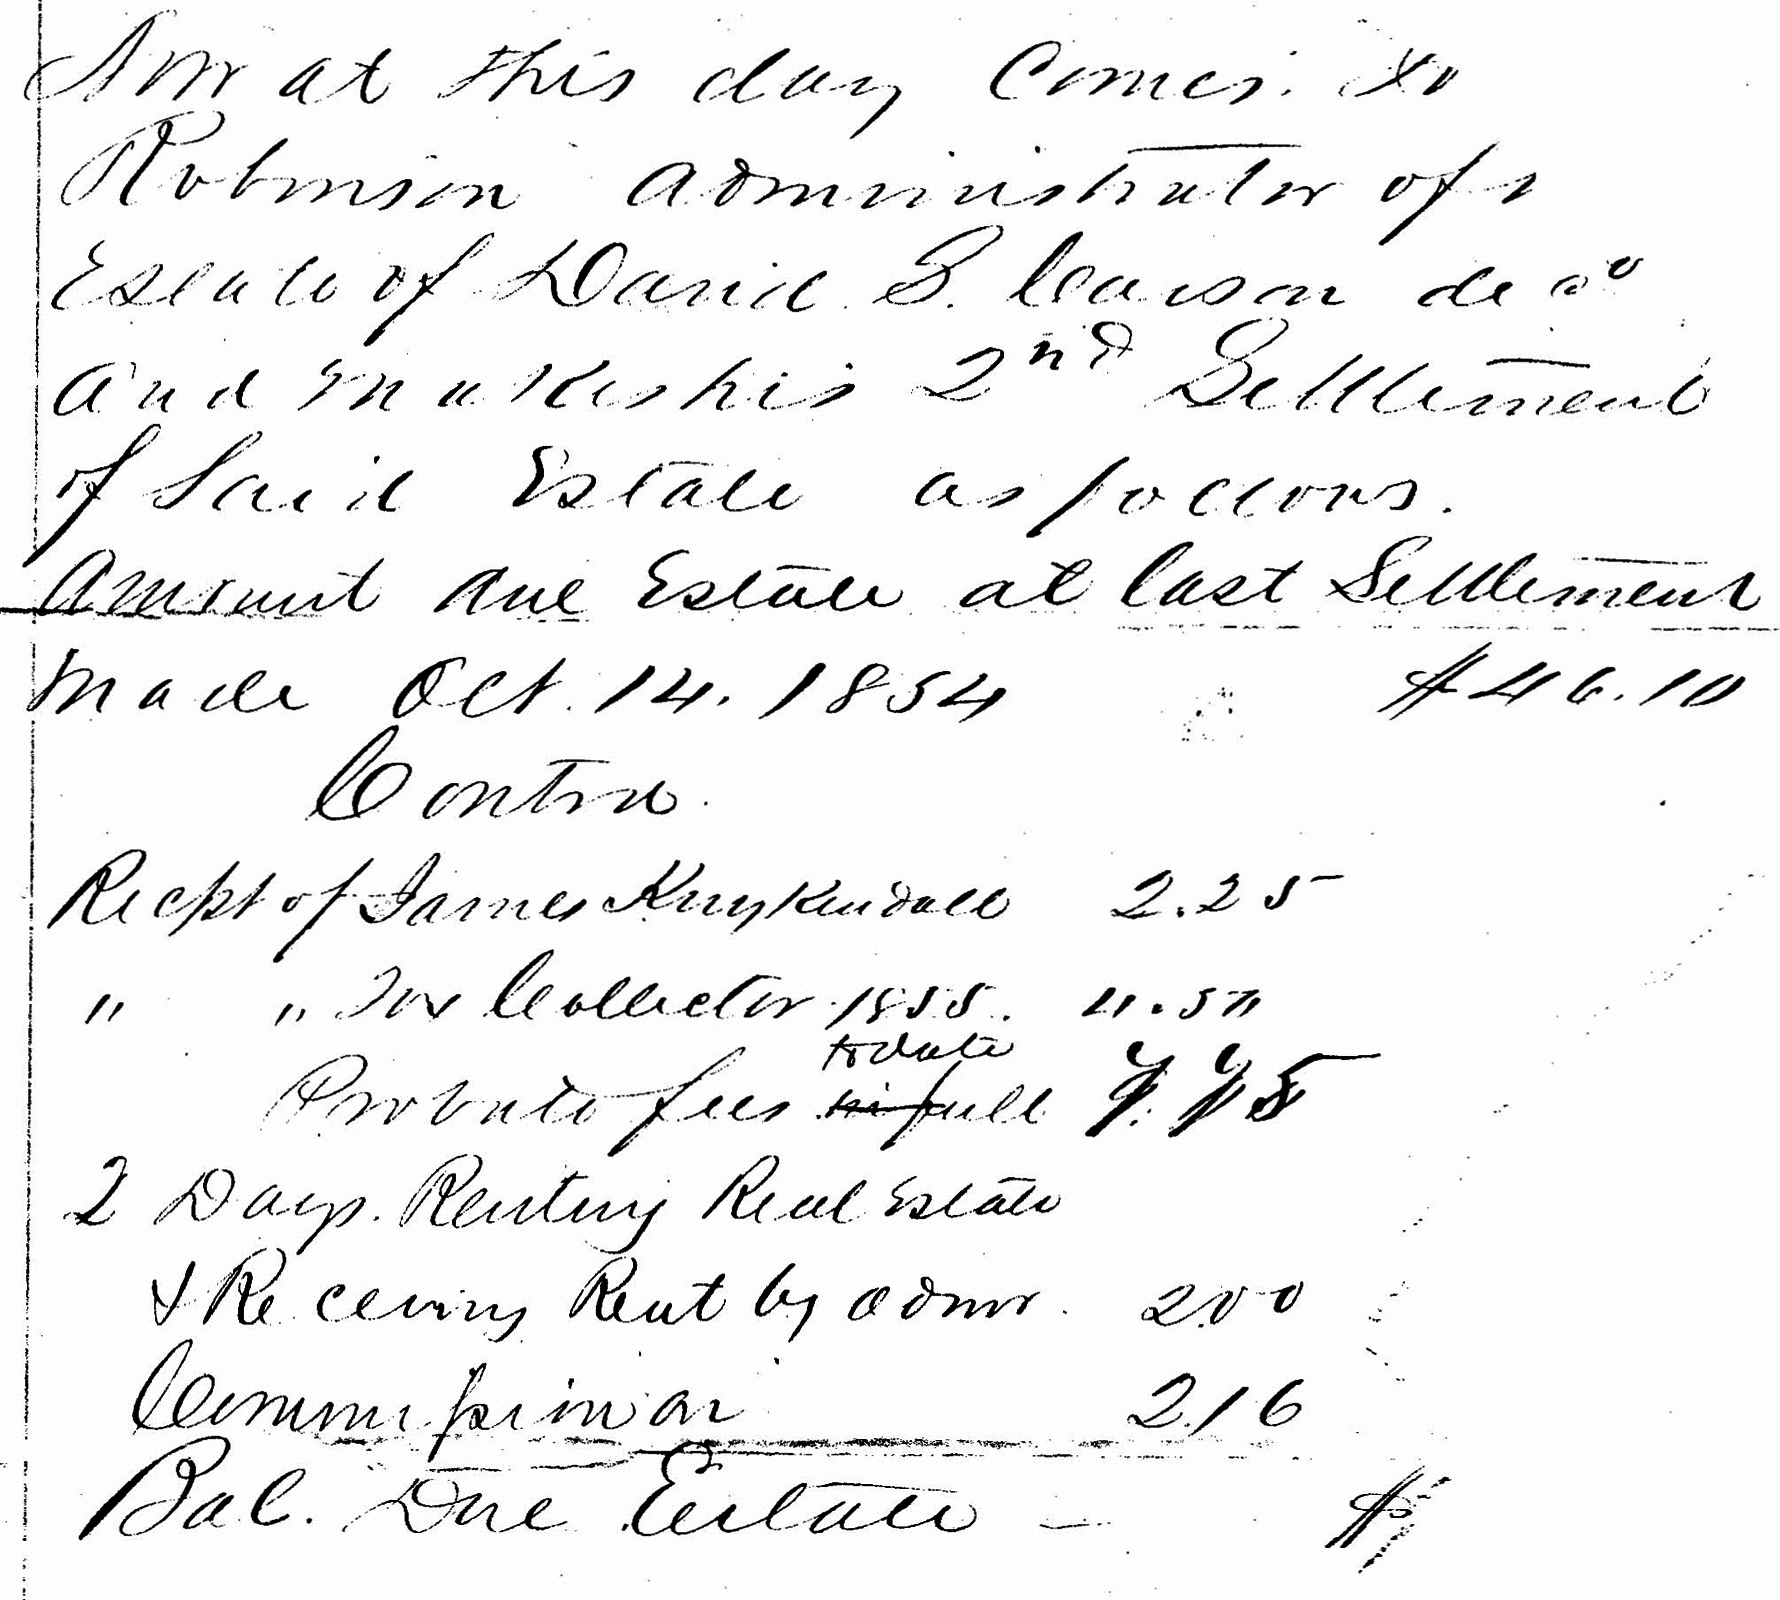 Now at this day Comes
Robinson administrator of
Estate of David S. Carson decd
and makes his 2nd Settlement
of Said Estate as follows.
Amount due Estate at last Settlement
Made Oct. 14. 1854 $46.10
Contra.
Reckpt of James Kuykendall 2.25
" " Tax Collector 1855.
to date
Probate fees in full
2 Days. Renting Real Estate
& Receiving Rent by admr. 2.00
Commission on 2.16
Bal. Due Estate — $